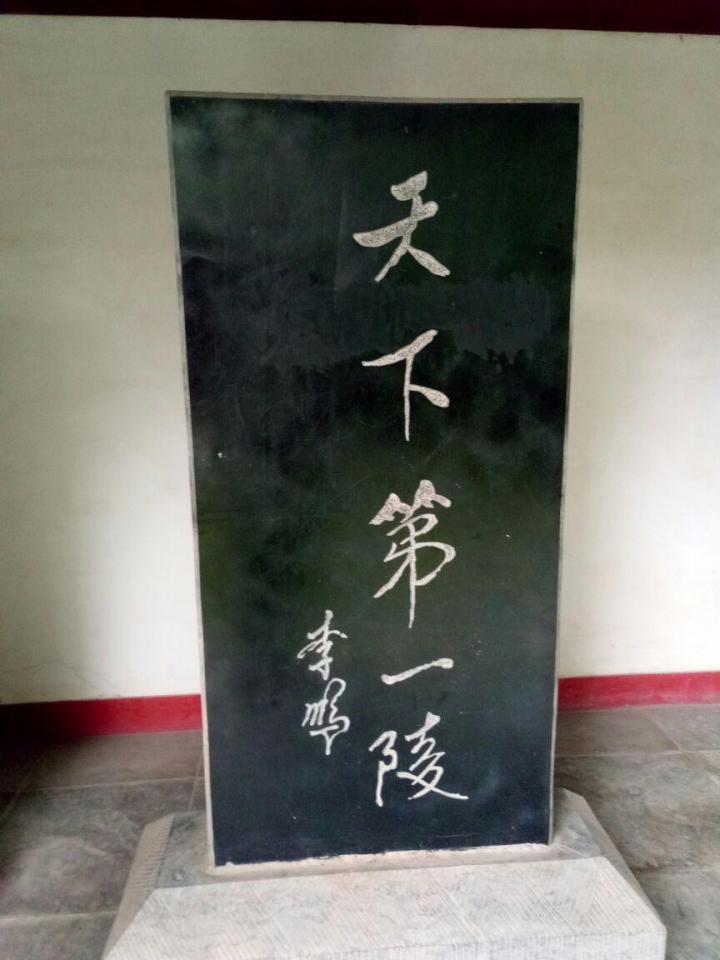 天下第一陵
李鹏